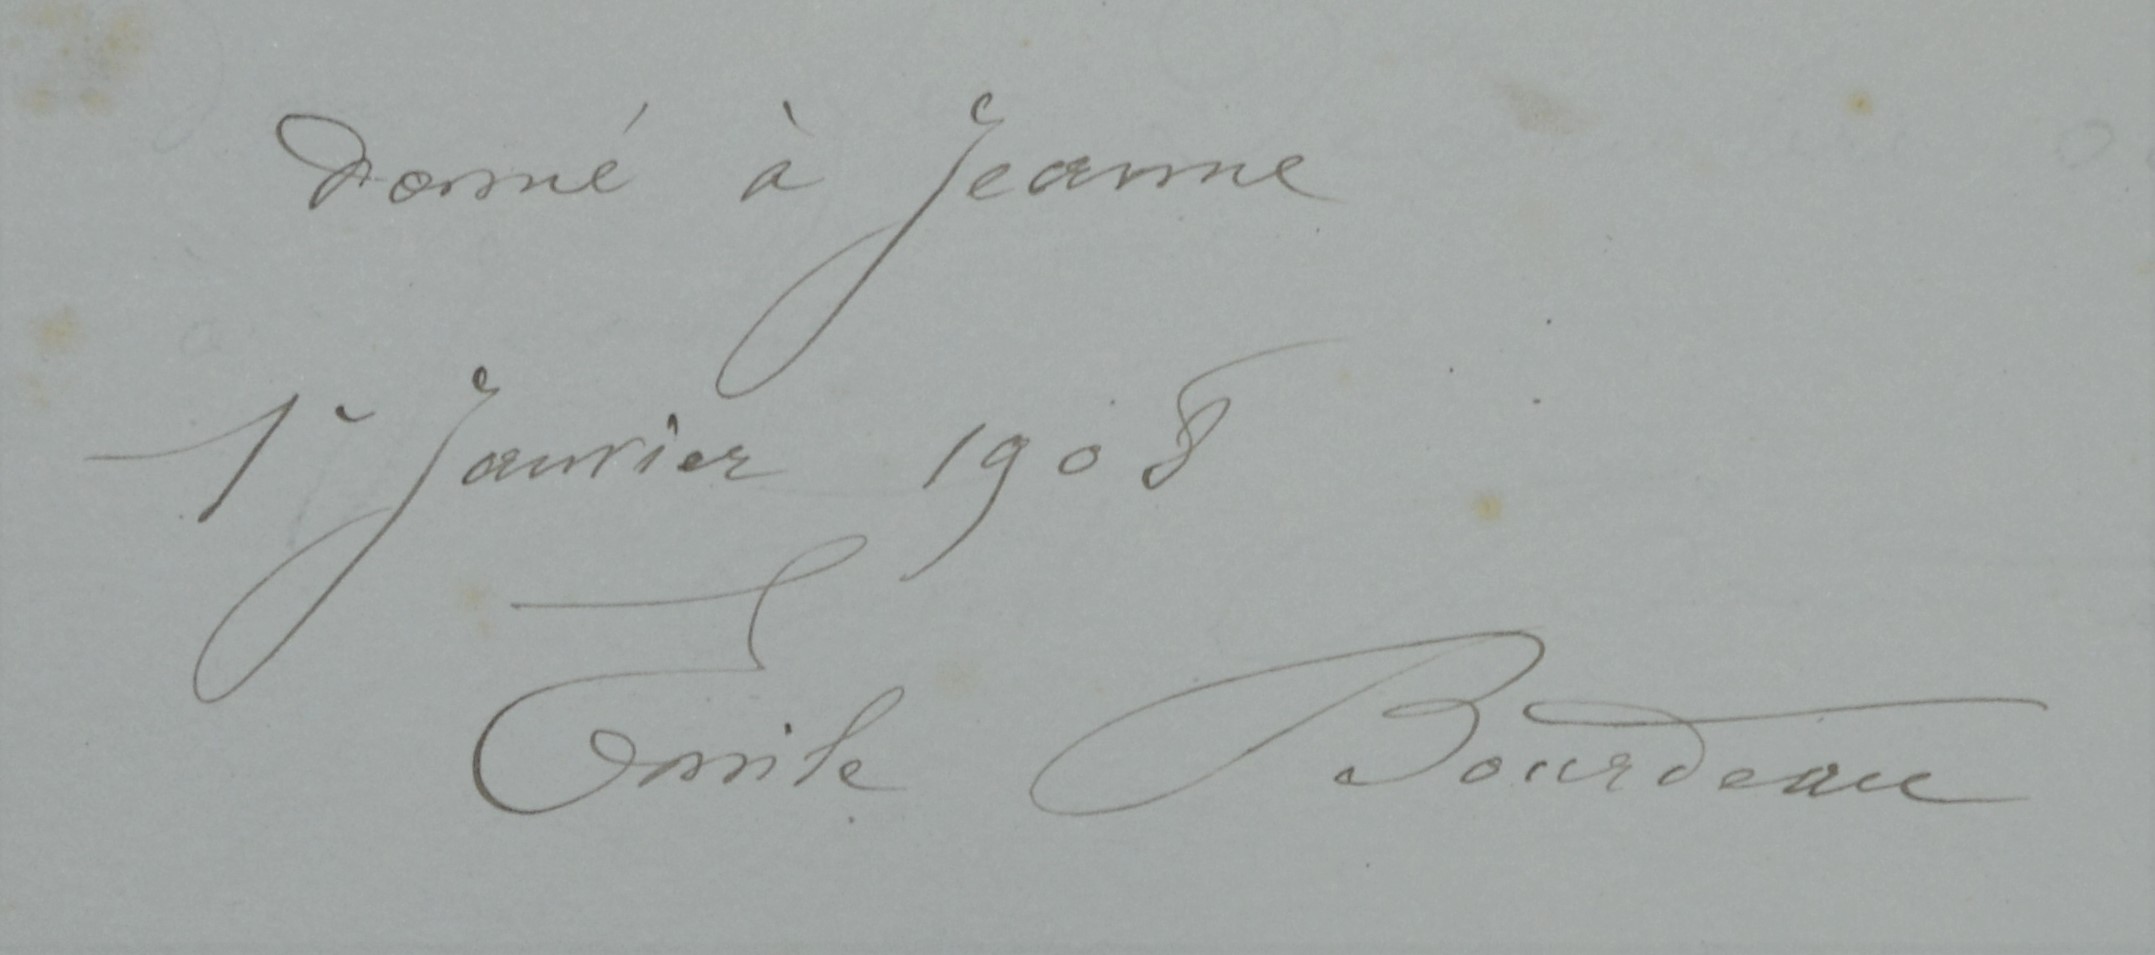 Donné à Jeanne
1r Janvier 1908
Emile Bourdeau